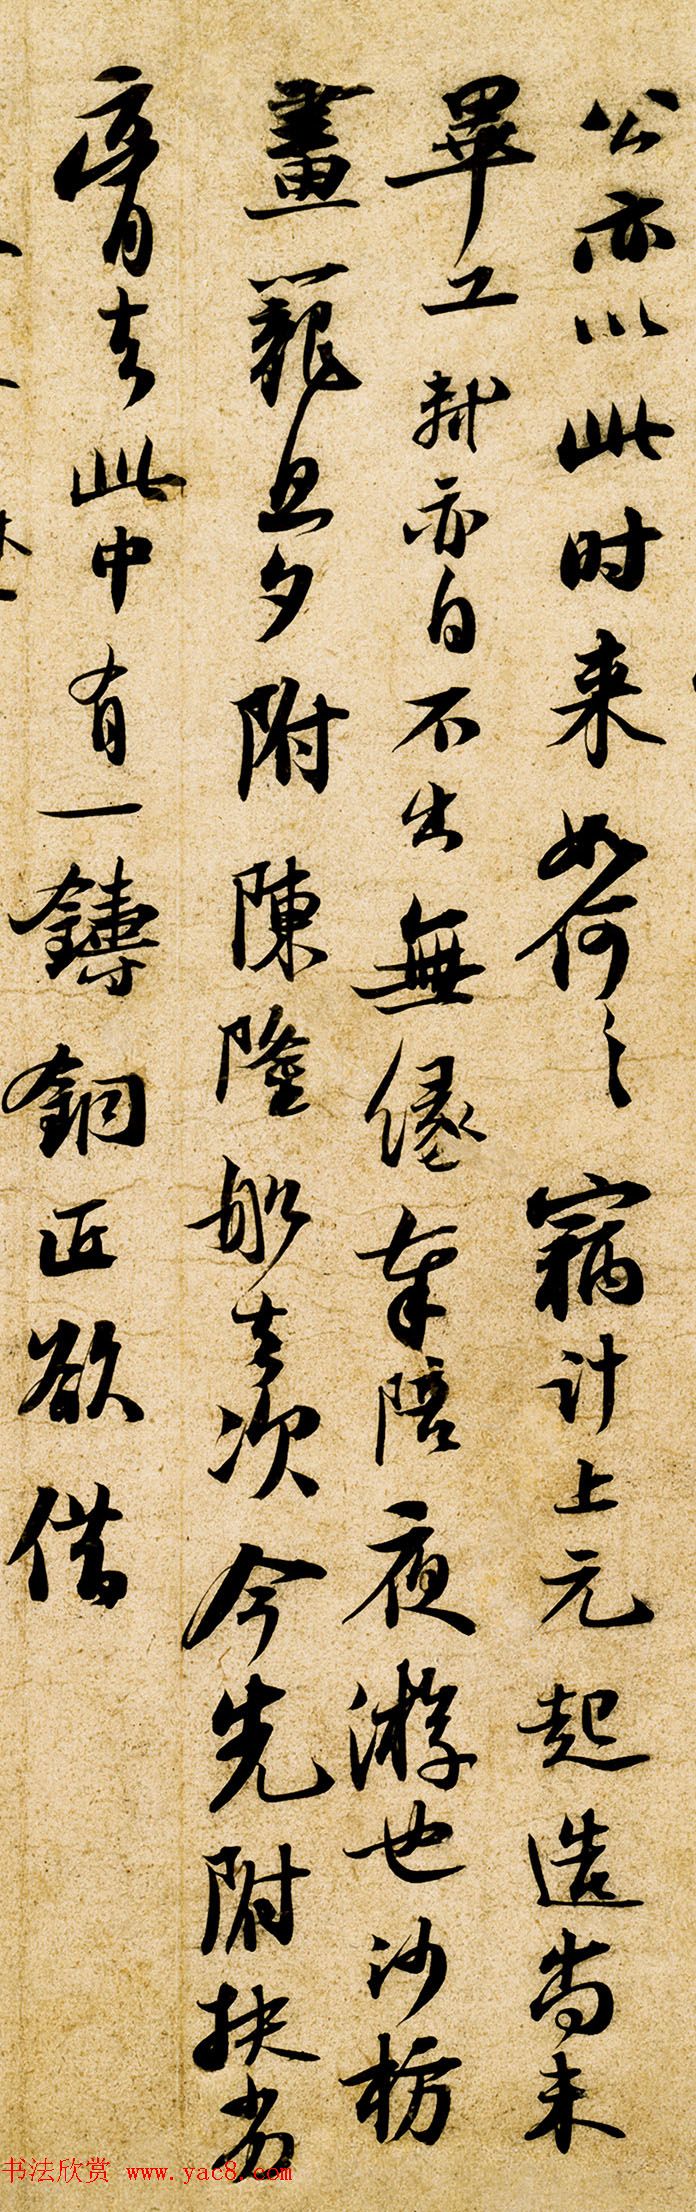 公亦以此时来如何〻竊計上元起造尚未
畢工軾亦自不出無緣奉陪夜游也沙枋
畫籠旦夕附陳隆船去次今先附扶劣
膏去此中有一鑄銅匠欲借
书法欣赏 www.yac8.com